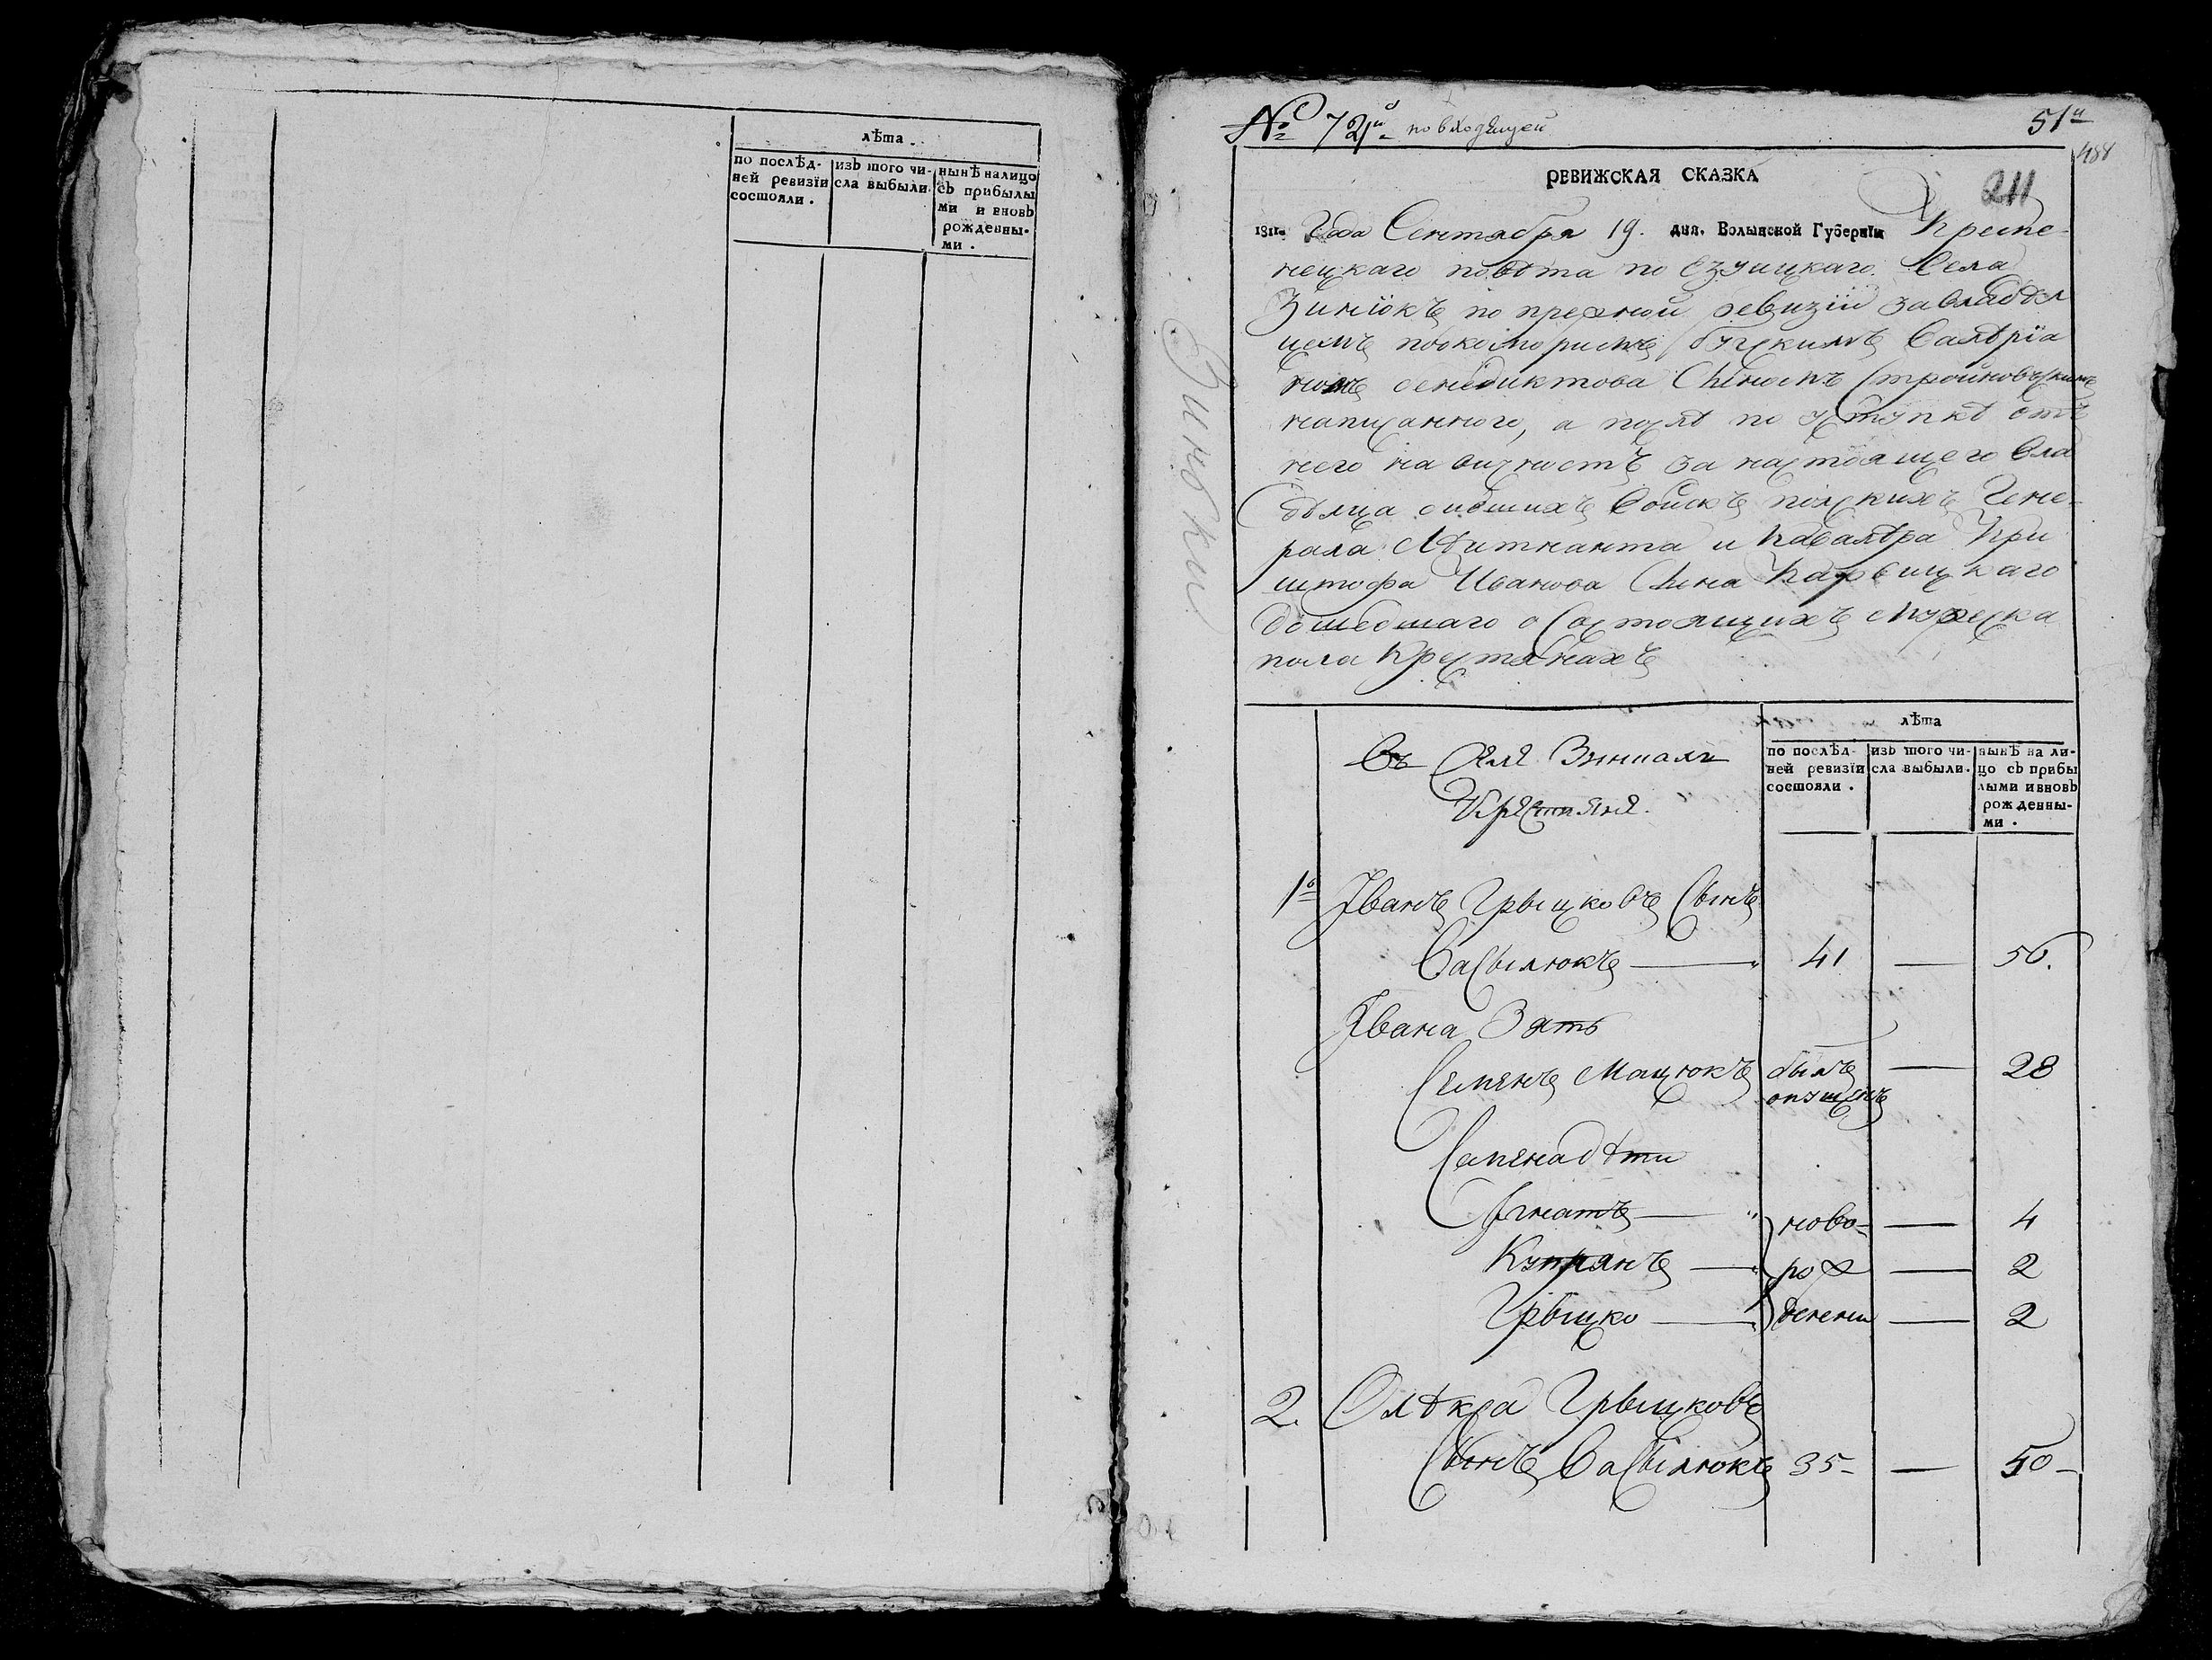 лѣта.
по послѣд-
ней ревизїи
состояли.
изъ того чи-
сла выбыли.
нынѣ налицо
съ прибылы
ми и вновь
рожденны-
ми.
Зиньки
№ 721й по входящей
51й
488
РЕВИЖСКАЯ СКАЗКА
211
1811го Года Сентября 19. дня. Волынской Губернїи Креме-
нецкаго повѣта по езуицкаго Села
Зинїокъ по прежной ревизїи завладѣл
цемъ подкоморимъ бускимъ Валѣрїа
номъ бенедиктова Сыномъ Стройновскимъ
написанного, а послѣ по уступкѣ отъ
него на вичность за настоящего вла
дѣлца бившихъ Войскъ полскихъ Гене-
рала Лѣитнанта и Кавалѣра Кри
штофа Иванова Сына Карвицкаго
дошедшаго о Состоящихъ мужеска
пола Крестянахъ
лѣта
по послѣд-
ней ревизїи
состояли.
изъ того чи-
сла выбыли.
нынѣ на ли-
цо съ прибы
лыми и вновь
рожденны-
ми.
Въ Селе
Крестяне.
1й Іванъ Грыцковъ Сынъ
Васылюкъ — 41 — 56.
Івана Зять
Семенъ Мацюкъ былъ опущенъ — 28
Семена дѣти
Игнатъ — ново- — 4
Купрянъ — рож — 2
Грыцко — денни — 2
2. Олѣкса Грыцковъ
Сынъ Васылюкъ 35- — 50-